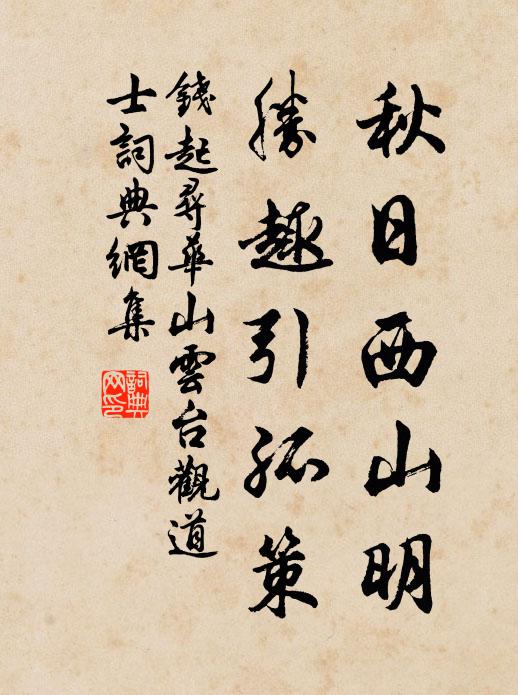 秋日西山明
勝趣引孤策
錢起尋華山雲台觀道
士詞典網集
詞典
网印